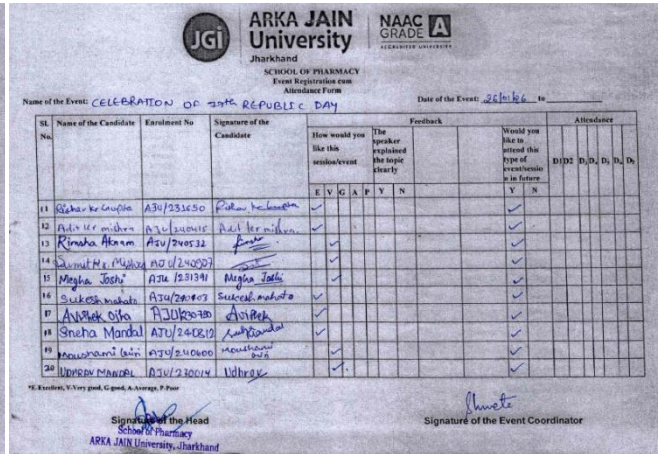 JGi ARKA JAIN University Jharkhand
NAAC GRADE A
ACCREDITED UNIVERSITY
SCHOOL OF PHARMACY
Event Registration cum
Attendance Form
Name of the Event: CELEBRATION OF 77th REPUBLIC DAY Date of the Event: 26/01/26 to
Sl. No. Name of the Candidate Enrolment No Signature of the Candidate Feedback Attendance
How would you like this session/event
The speaker explained the topic clearly
Would you like to attend this type of event/session in future
D1 D2 D3 D4 D5 D6
E V G A P Y N Y N
11 AJU/231650
12 Adit kr mishra AJU/240415 Adit kr mishra.
13 Rimsha AJU/240532
14 AJU/240907
15 Megha Joshi AJU/231391 Megha Joshi
16 Sukesh mahato Sukesh mahato
17 Avishek Ojha Avishek
18 Sneha Mandal AJU/240812
19 Moushami AJU/240600 Moushami
20 UDHRAV MANDAL AJU/230014 Udhrav
*E-Excellent, V-Very good, G-good, A-Average, P-Poor
Signature of the Head
School of Pharmacy
ARKA JAIN University, Jharkhand
Shweta
Signature of the Event Coordinator